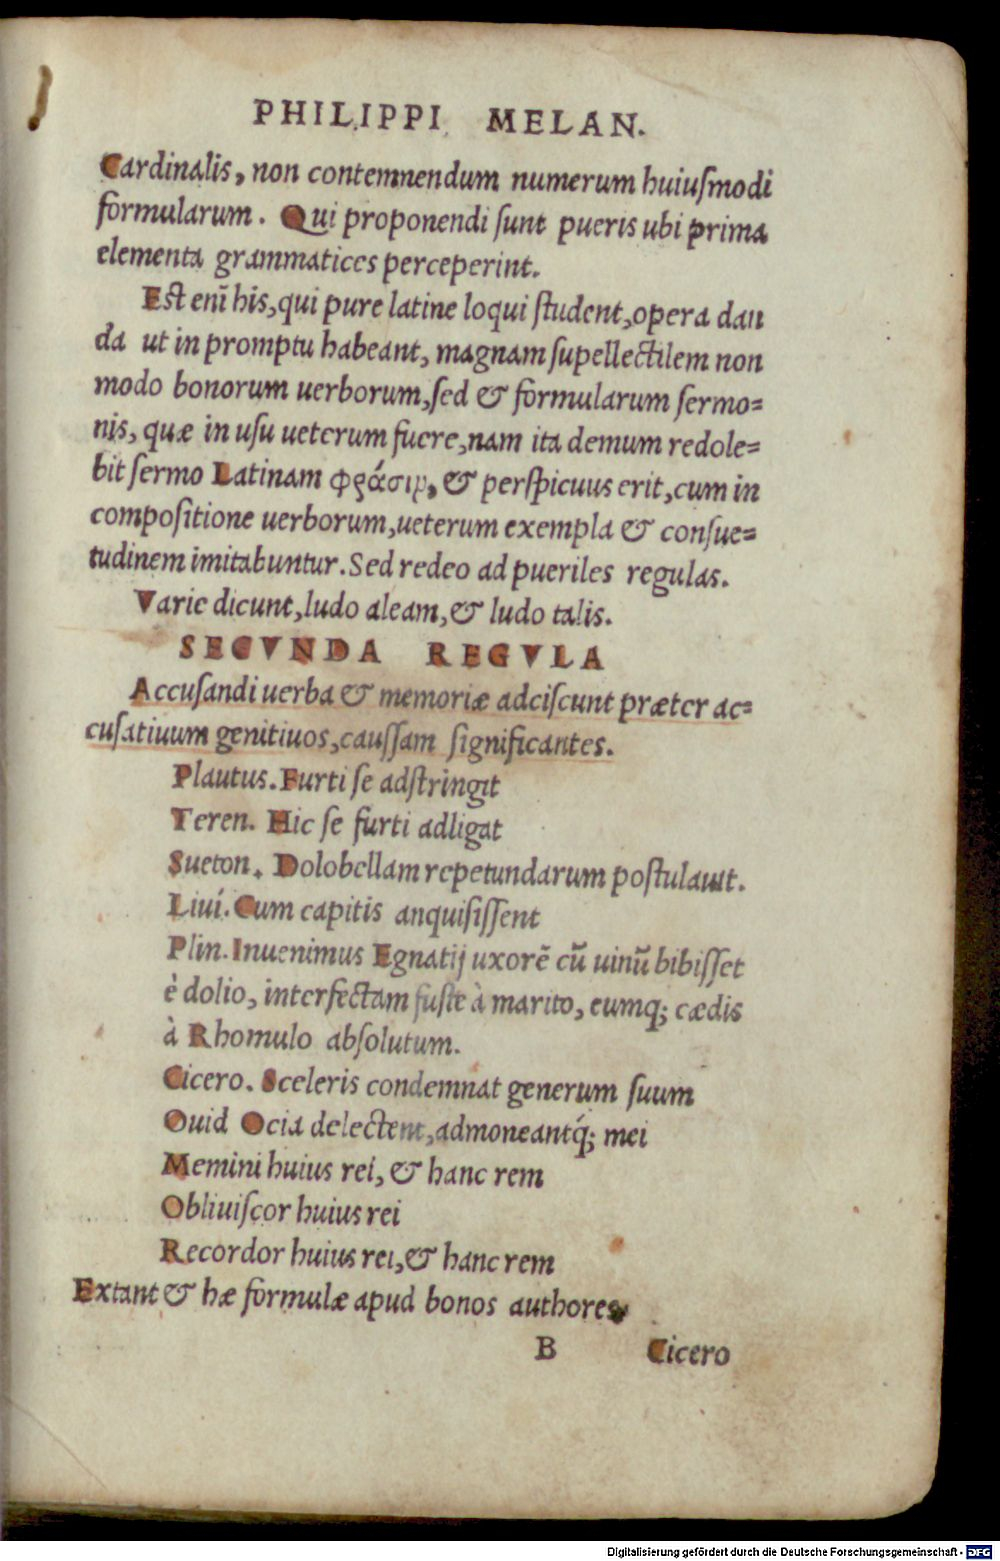 PHILIPPI MELAN.
Cardinalis, non contemnendum numerum huiuſmodi
formularum. Qui proponendi ſunt pueris ubi prima
elementa grammatices perceperint.
Eſt enī his, qui pure latine loqui ſtudent, opera dan
da ut in promptu habeant, magnam ſupellectilem non
modo bonorum uerborum, ſed & formularum ſermo=
nis, quæ in uſu ueterum fuere, nam ita demum redole=
bit ſermo Latinam φράσιν, & perſpicuus erit, cum in
compoſitione uerborum, ueterum exempla & conſue=
tudinem imitabuntur. Sed redeo ad pueriles regulas.
Varie dicunt, ludo aleam, & ludo talis.
SECVNDA REGVLA
Accuſandi uerba & memoriæ adciſcunt præter ac=
cuſatiuum genitiuos, cauſſam ſignificantes.
Plautus. Furti ſe adſtringit
Teren. Hic ſe furti adligat
Sueton. Dolobellam repetundarum poſtulauit.
Liuí. Cum capitis anquiſiſſent
Plin. Inuenimus Egnatij uxorē cū uinū bibiſſet
è dolio, interfectam fuſte à marito, eumq; cædis
à Rhomulo abſolutum.
Cicero. Sceleris condemnat generum ſuum
Ouid Ocia delectent, admoneantq́; mei
Memini huius rei, & hanc rem
Obliuiſcor huius rei
Recordor huius rei, & hanc rem
Extant & hæ formulæ apud bonos authores
B Cicero
Digitalisierung gefördert durch die Deutsche Forschungsgemeinschaft - DFG